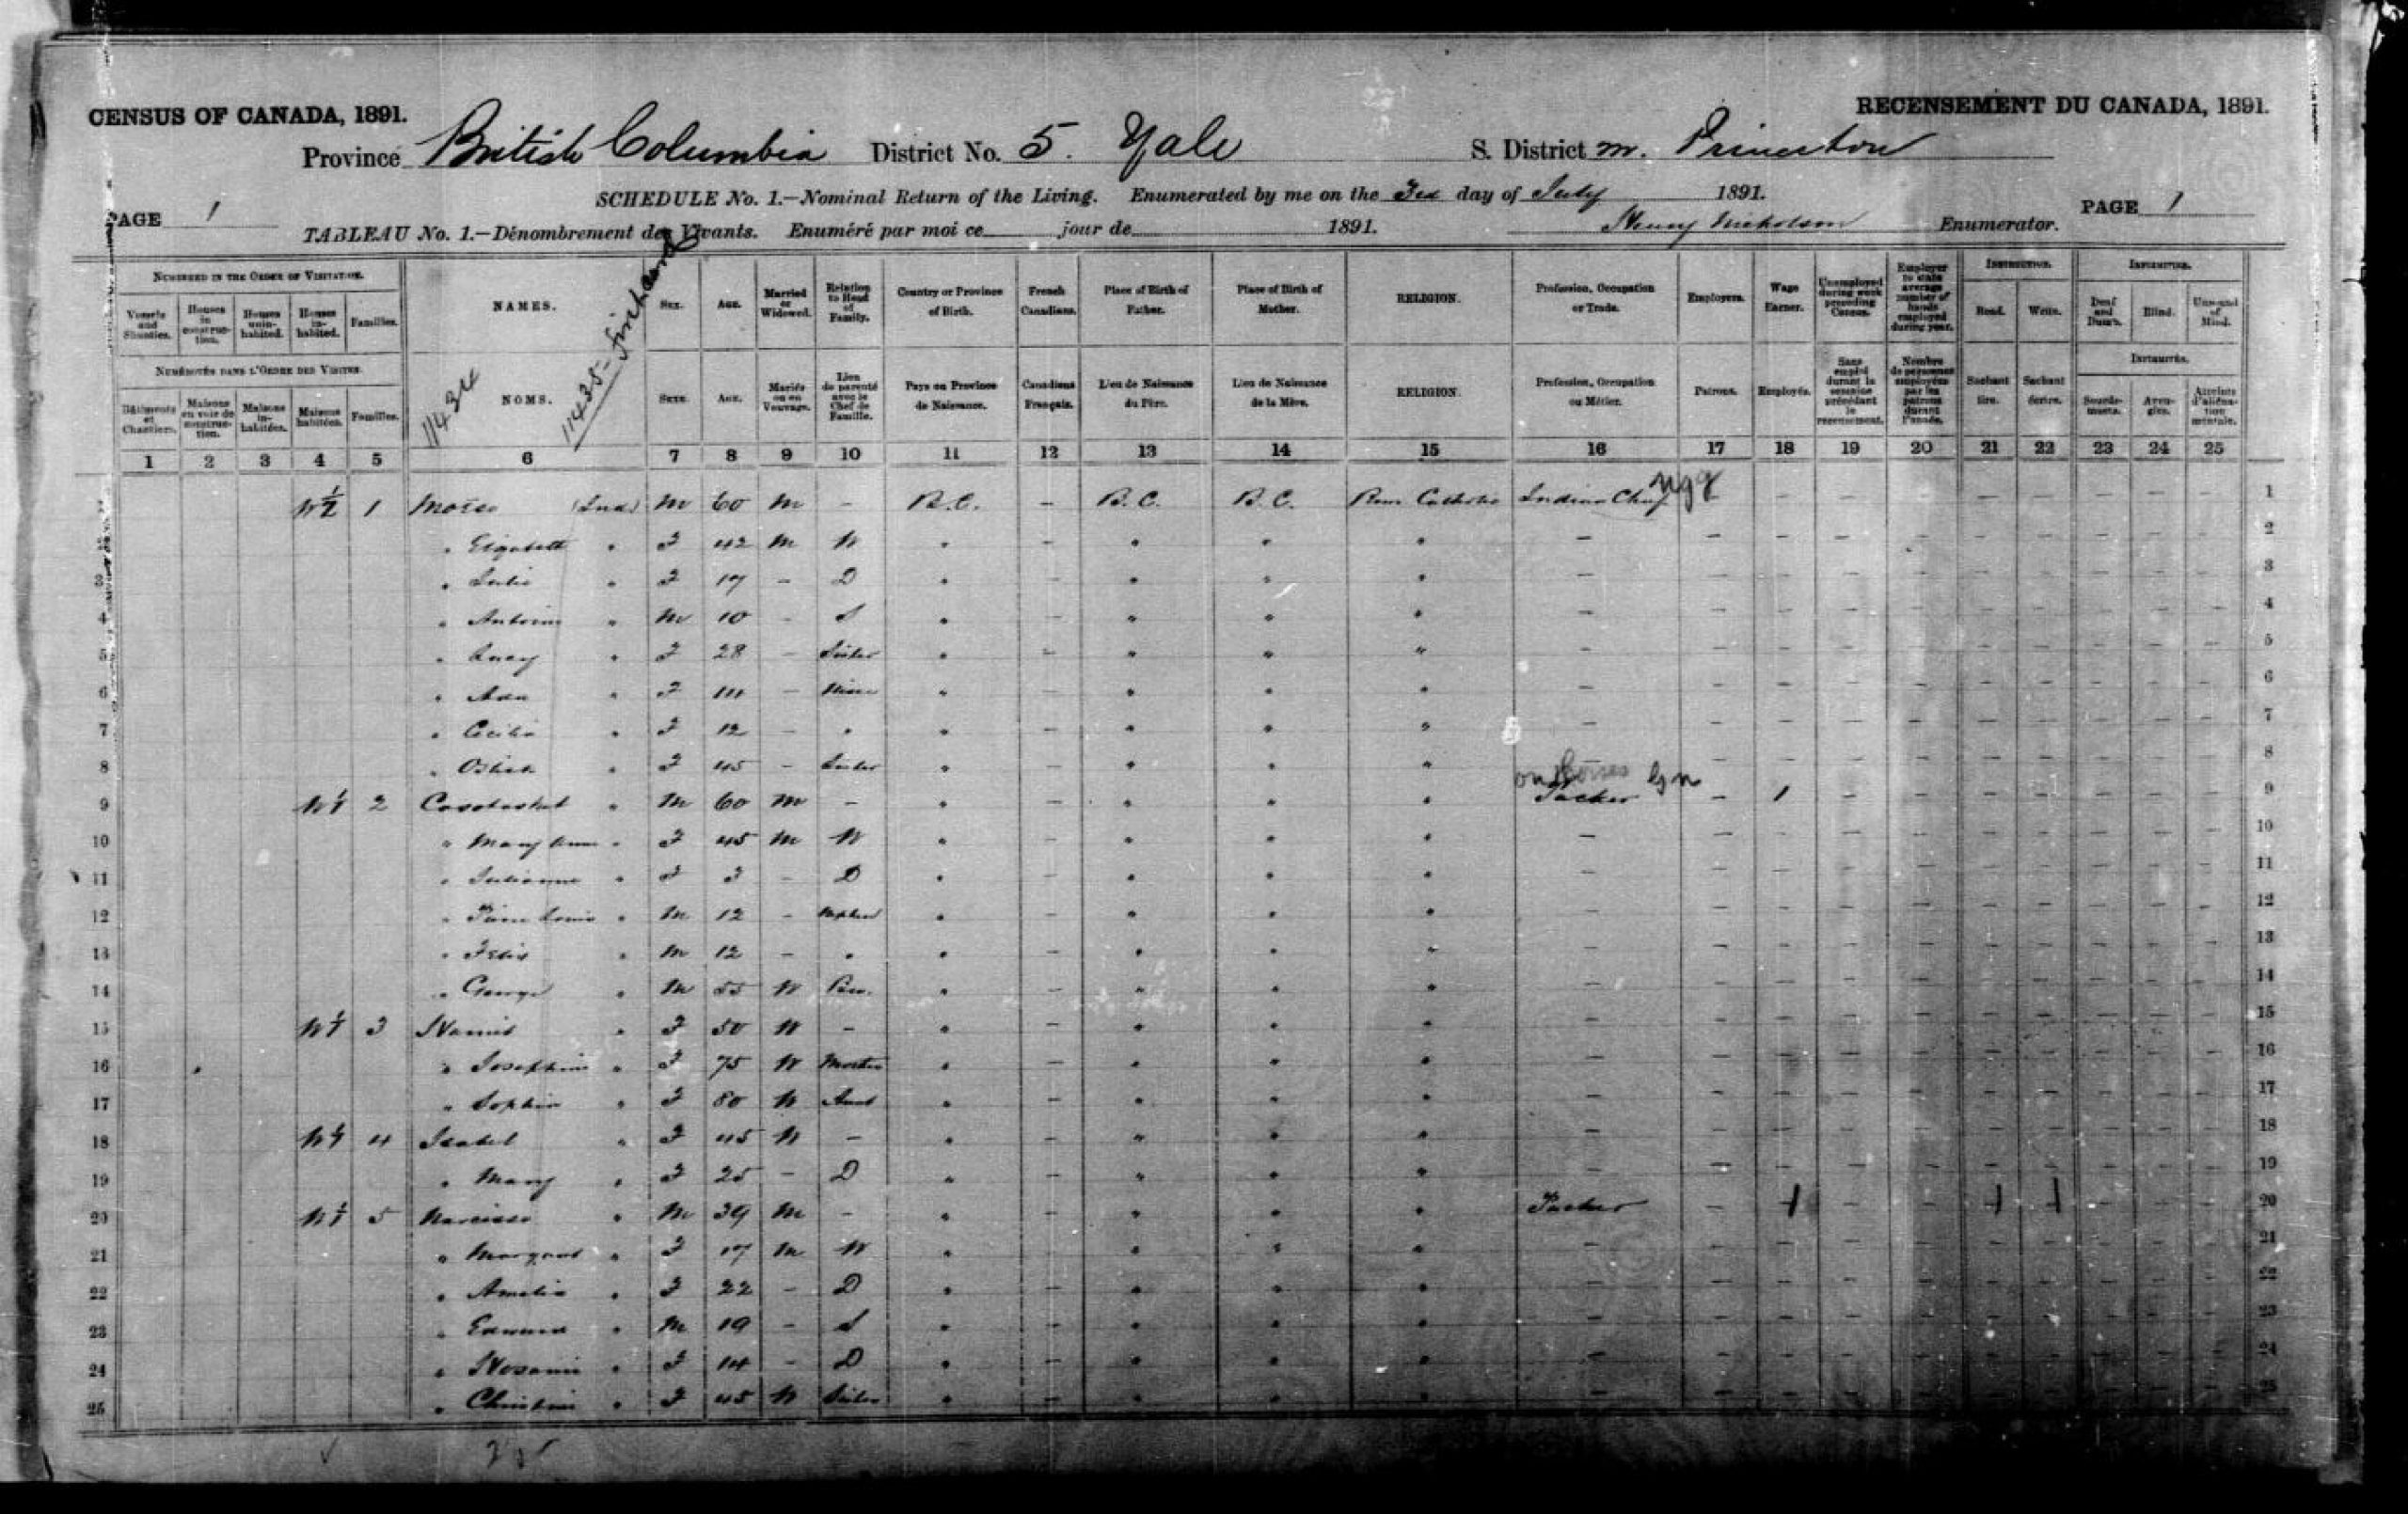 CENSUS OF CANADA, 1891.
RECENSEMENT DU CANADA, 1891.
Province British Columbia District No. 5. Yale S. District m. Princeton
SCHEDULE No. 1.—Nominal Return of the Living. Enumerated by me on the day of July 1891.
PAGE 1
PAGE 1
TABLEAU No. 1.—Dénombrement des Vivants. Enuméré par moi ce jour de 1891. Henry Nicholson Enumerator.
NUMBERED IN THE ORDER OF VISITATION.
Vessels and Shanties. Houses in construction. Houses uninhabited. Houses inhabited. Families. NAMES. SEX. AGE. Married or Widowed. Relation to Head of Family. Country or Province of Birth. French Canadians. Place of Birth of Father. Place of Birth of Mother. RELIGION. Profession, Occupation or Trade. Employers. Wage Earner. Unemployed during week preceding Census. Employer to state average number of hands employed during year. INSTRUCTION. Read. Write. INFIRMITIES. Deaf and Dumb. Blind. Unsound of Mind.
NUMÉROTÉS DANS L'ORDRE DES VISITES.
Bâtiments et Chantiers. Maisons en voie de construction. Maisons inhabitées. Maisons habitées. Familles. NOMS. SEXE. AGE. Mariés ou en Veuvage. Lien de parenté avec le Chef de Famille. Pays ou Province de Naissance. Canadiens Français. Lieu de Naissance du Père. Lieu de Naissance de la Mère. RELIGION. Profession, Occupation ou Métier. Patrons. Employés. Sans emploi durant la semaine précédant le recensement. Nombre de personnes employées par les patrons durant l'année. Sachant lire. Sachant écrire. INFIRMITÉS. Sourds-muets. Aveugles. Atteints d'aliénation mentale.
11434
11435
1 2 3 4 5 6 7 8 9 10 11 12 13 14 15 16 17 18 19 20 21 22 23 24 25
1 W½ 1 Moise (Ind) M 60 M – B.C. – B.C. B.C. Rom Catholic Indian Chief – – – – – – – – 1
2 " Elizabeth " F 42 M W " – " " " – – – – – – – – – – 2
3 " Julie " F 17 – D " – " " " – – – – – – – – – – 3
4 " Antoine " M 10 – S " – " " " – – – – – – – – – – 4
5 " " F 28 – Sister " – " " " – – – – – – – – – – 5
6 " Ada " F 14 – Niece " – " " " – – – – – – – – – – 6
7 " Cecilia " F 12 – " " – " " " – – – – – – – – – – 7
8 " " F 45 – Sister " – " " " – – – – – – – – – 8
on horses
9 W 1/1 2 " M 60 M – " – " " " Packer – 1 – – – – – – – 9
10 " Mary Ann " F 45 M W " – " " " – – – – – – – – – – 10
11 " Julianne " F 3 – D " – " " " – – – – – – – – – – 11
12 " Pierre Louis " M 12 – Nephew " – " " " – – – – – – – – – – 12
13 " Felix " M 12 – " " – " " " – – – – – – – – – – 13
14 " George " M 55 W " – " " " – – – – – – – – – – 14
15 W 1/1 3 " F 50 W – " – " " " – – – – – – – – – – 15
16 " Josephine " F 75 W Mother " – " " " – – – – – – – – – – 16
17 " Sophia " F 80 W Aunt " – " " " – – – – – – – – – – 17
18 W 1/1 4 Isabel " F 45 W – " – " " " – – – – – – – – – – 18
19 " Mary " F 25 – D " – " " " – – – – – – – – – – 19
20 W 1/1 5 Narcisse " M 39 M – " – " " " Packer – 1 – – 1 1 – – – 20
21 " Margaret " F 17 M W " – " " " – – – – – – – – – – 21
22 " Amelia " F 22 – D " – " " " – – – – – – – – – – 22
23 " Edward " M 19 – S " – " " " – – – – – – – – – – 23
24 " " F 14 – D " – " " " – – – – – – – – – – 24
25 " Christine " F 45 W Sister " – " " " – – – – – – – – – – 25